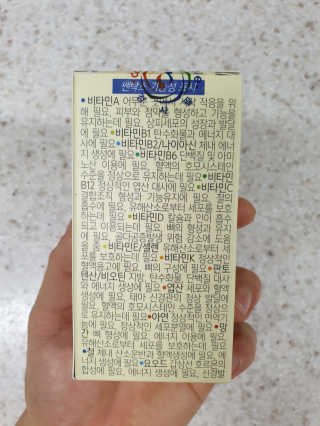 기능성 표시
• 비타민A 어두운 적응을 위
해 필요, 피부와 점막을 형성하고 기능을
유지하는데 필요, 상피세포의 성장과 발달
에 필요 •비타민B1 탄수화물과 에너지 대
사에 필요 •비타민B2/나이아신 체내 에너
지 생성에 필요 •비타민B6 단백질 및 아미
노산 이용에 필요, 혈액의 호모시스테인
수준을 정상으로 유지하는데 필요 •비타민
B12 정상적인 엽산 대사에 필요 •비타민C
결합조직 형성과 기능유지에 필요, 철의
흡수에 필요, 유해산소로부터 세포를 보호
하는데 필요 •비타민D 칼슘과 인이 흡수
되고 이용되는데 필요, 뼈의 형성과 유지
에 필요, 골다공증발생 위험 감소에 도움
을 줌 •비타민E/셀렌 유해산소로부터 세
포를 보호하는데 필요 •비타민K 정상적인
혈액응고에 필요, 뼈의 구성에 필요 •판토
텐산/비오틴 지방, 탄수화물, 단백질 대사
와 에너지 생성에 필요 •엽산 세포와 혈액
생성에 필요, 태아 신경관의 정상 발달에
필요, 혈액의 호모시스테인 수준을 정상으
로 유지하는데 필요 •아연 정상적인 면역기
능에 필요, 정상적인 세포분열에 필요 •망
간 뼈 형성에 필요, 에너지 이용에 필요,
유해산소로부터 세포를 보호하는데 필요
•철 체내 산소운반과 혈액생성에 필요, 에
너지 생성에 필요 •요오드 갑상선 호르몬의
합성에 필요, 에너지 생성에 필요, 신경발